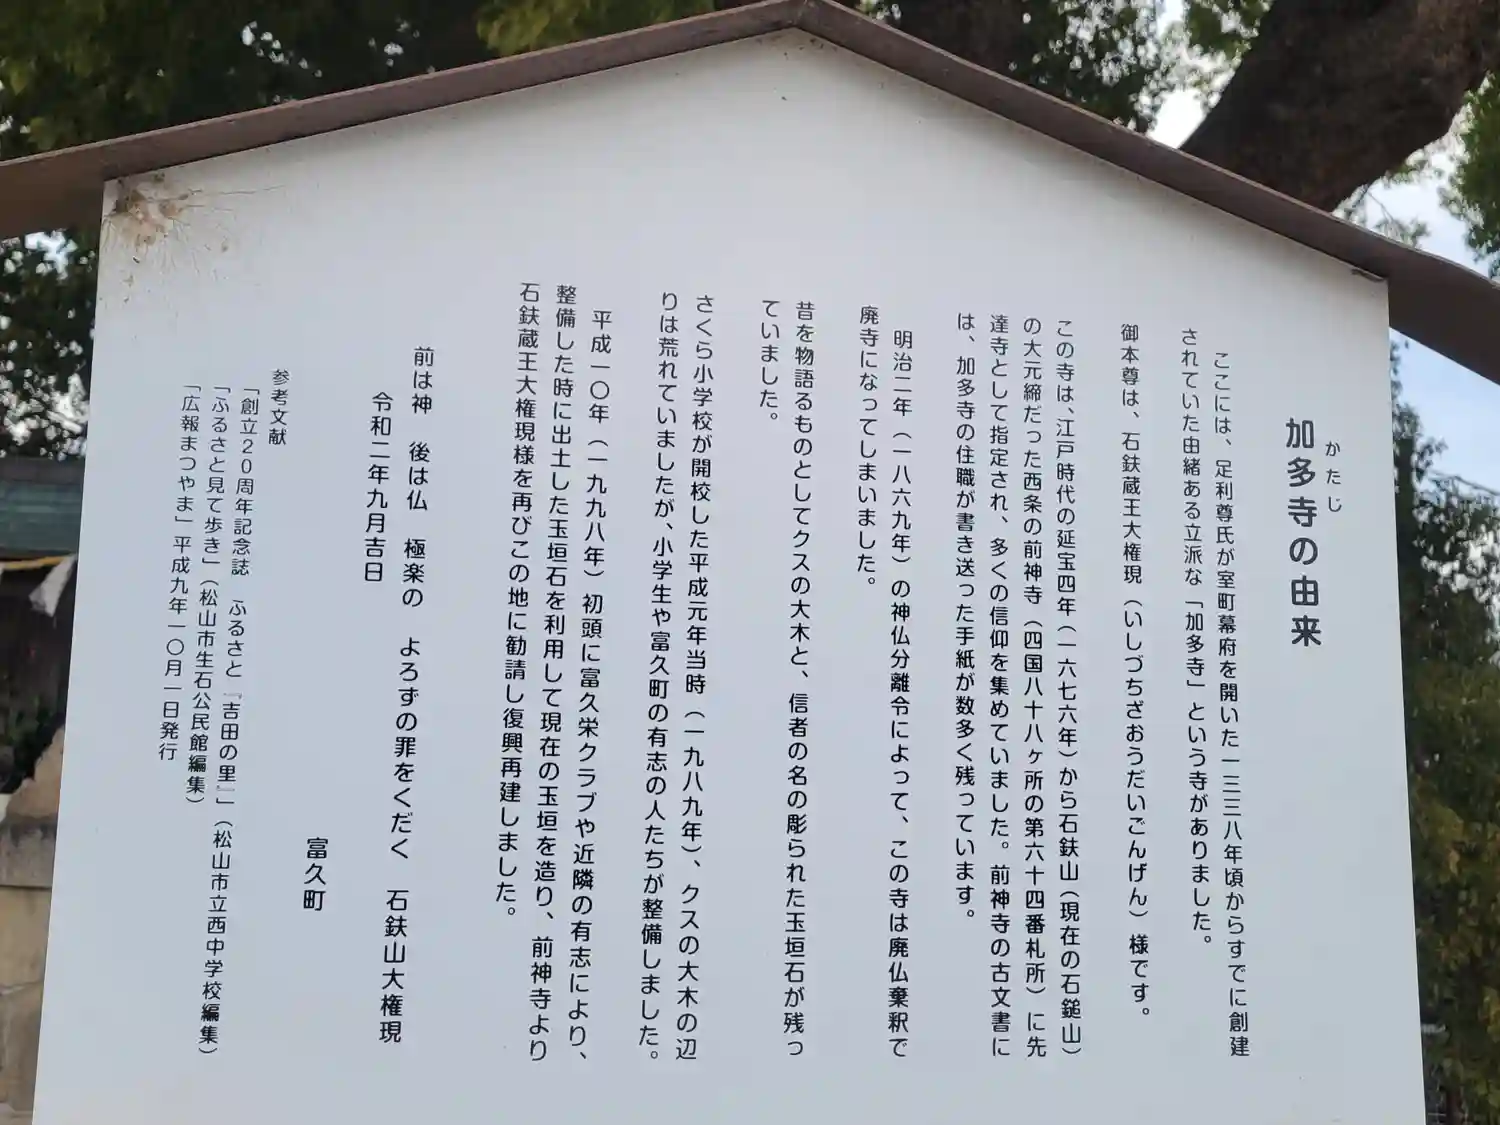 かたじ
加多寺の由来
ここには、足利尊氏が室町幕府を開いた一三三八年頃からすでに創建
されていた由緒ある立派な「加多寺」という寺がありました。
御本尊は、石鈇蔵王大権現（いしづちざおうだいごんげん）様です。
この寺は、江戸時代の延宝四年（一六七六年）から石鈇山（現在の石鎚山）
の大元締だった西条の前神寺（四国八十八ヶ所の第六十四番札所）に先
達寺として指定され、多くの信仰を集めていました。前神寺の古文書に
は、加多寺の住職が書き送った手紙が数多く残っています。
明治二年（一八六九年）の神仏分離令によって、この寺は廃仏棄釈で
廃寺になってしまいました。
昔を物語るものとしてクスの大木と、信者の名の彫られた玉垣石が残っ
ていました。
さくら小学校が開校した平成元年当時（一九八九年）、クスの大木の辺
りは荒れていましたが、小学生や富久町の有志の人たちが整備しました。
平成一〇年（一九九八年）初頭に富久栄クラブや近隣の有志により、
整備した時に出土した玉垣石を利用して現在の玉垣を造り、前神寺より
石鈇蔵王大権現様を再びこの地に勧請し復興再建しました。
前は神　後は仏　極楽の　よろずの罪をくだく　石鈇山大権現
令和二年九月吉日
富久町
参考文献
「創立２０周年記念誌　ふるさと『吉田の里』」（松山市立西中学校編集）
「ふるさと見て歩き」（松山市生石公民館編集）
「広報まつやま」平成九年一〇月一日発行